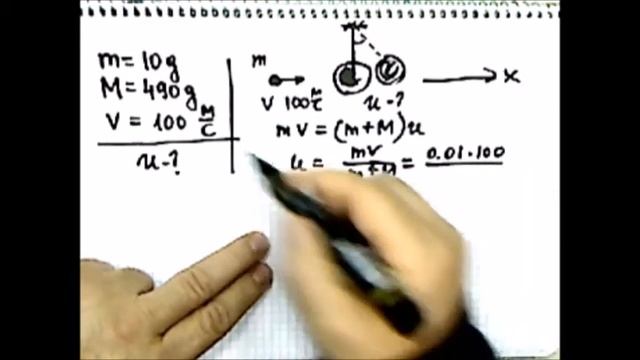 m = 10 g
M = 490 g
V = 100 м/с
u - ?
m
V 100 м/с
u - ?
x
mV = (m+M)u
u = mV/m+M = 0.01·100